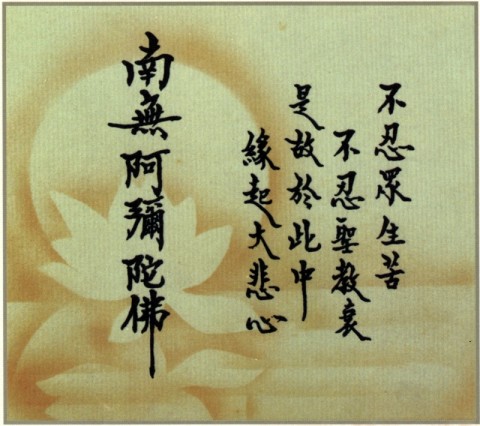 不忍眾生苦
不忍聖教衰
是故於此中
緣起大悲心
南無阿彌陀佛